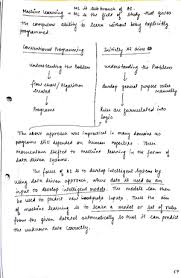 Machine Learning → ML is sub branch of AI.
→ ML is the field of study that gives
the computers ability to learn without being explicitly
programmed
Conventional Programming
Initially AI
Understanding the Problem
Understanding the Problem
flow chart / Algorithm
created
develop general purpose rules
manually
Programs
Rules are formulated into
logic
The above approach was impractical in many domains as
programs still depended on human expertise. Then
momentum shifted to machine learning in the form of
data driven systems.
The focus of AI is to develop intelligent systems by
using data driven approach, where data is used as an
input to develop intelligent models. The models can then
be used to predict new inputs. Thus the aim
of machine learning is to learn a model or set of rules
from the given dataset automatically so that it can predict
the unknown data correctly.